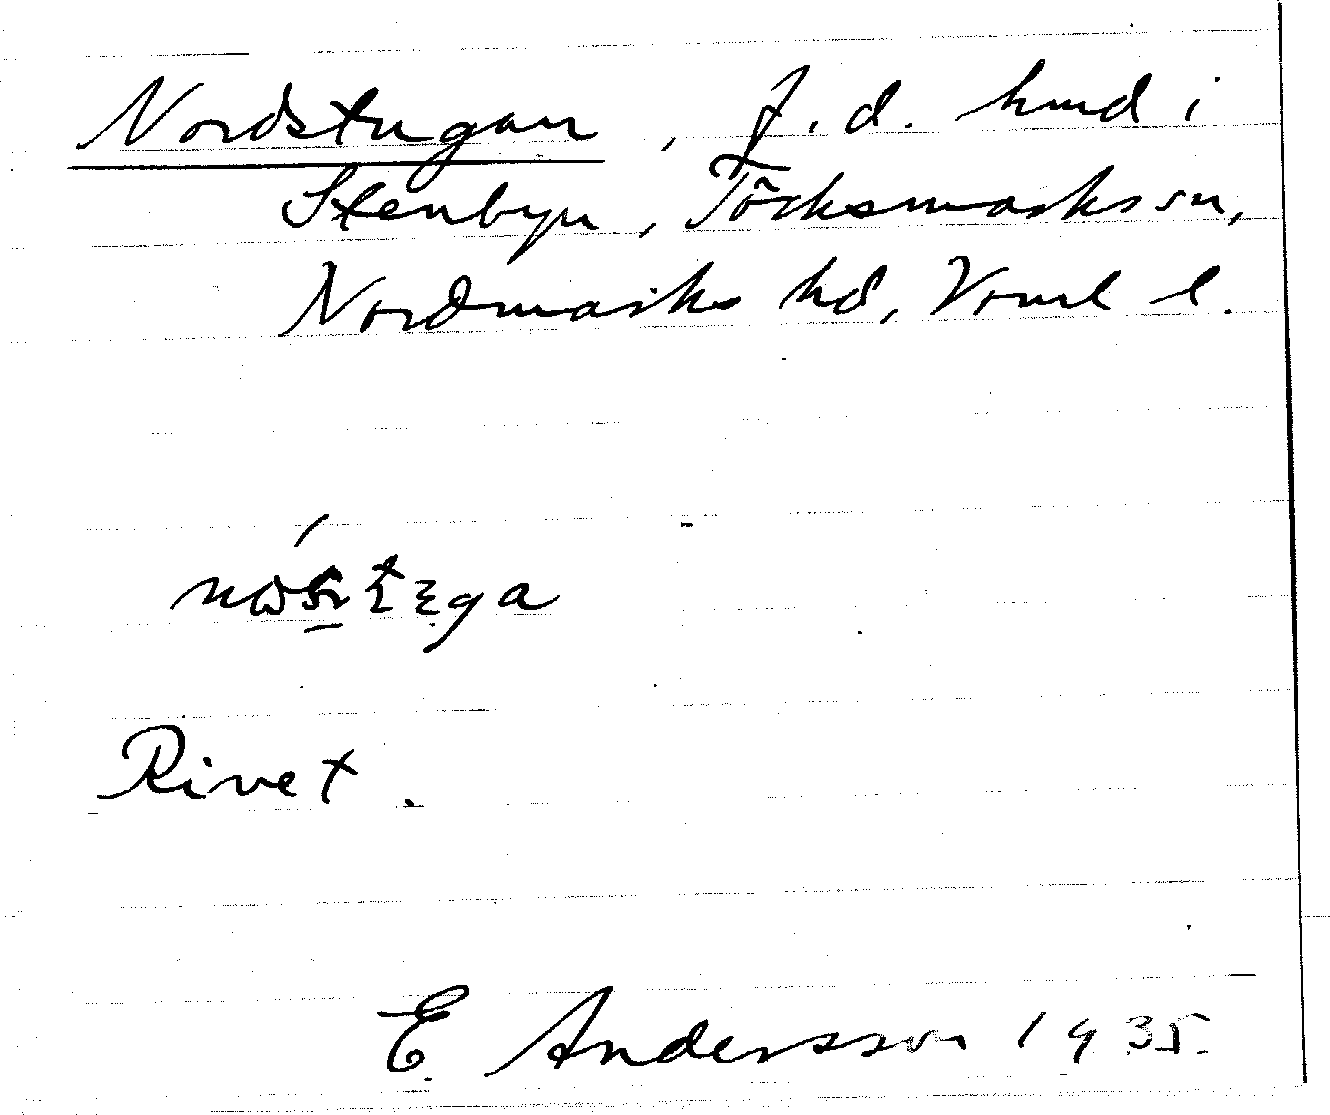 Nordstugan, f.d. hmd i
Stenbyn, Töcksmarks sn,
Nordmarks hd, Vrml l.
Rivet.
E Andersson 1935.